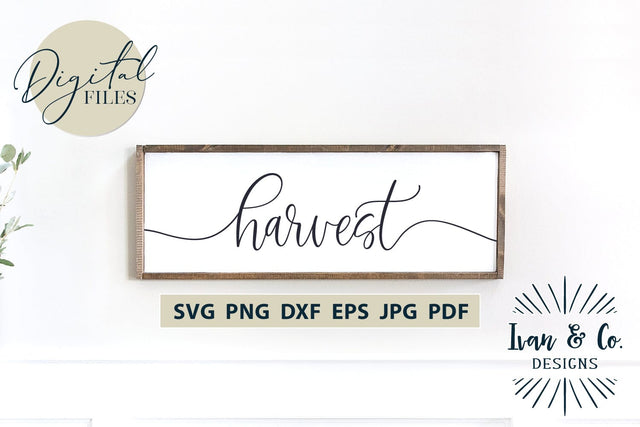 Digital
FILES
harvest
SVG PNG DXF EPS JPG PDF
Ivan & Co.
DESIGNS